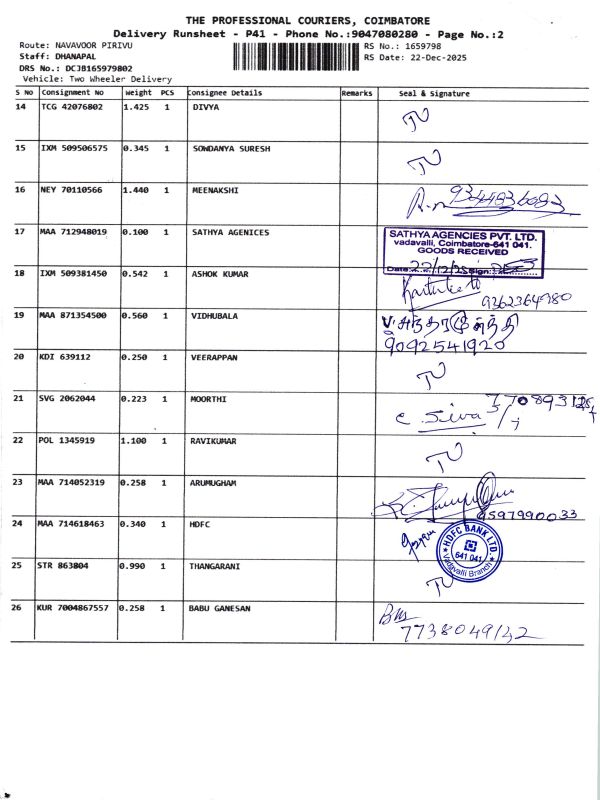 THE PROFESSIONAL COURIERS, COIMBATORE
Delivery Runsheet - P41 - Phone No.:9047080280 - Page No.:2
Route: NAVAVOOR PIRIVU RS No.: 1659798
Staff: DHANAPAL RS Date: 22-Dec-2025
DRS No.: DCJB165979802
Vehicle: Two Wheeler Delivery
S No Consignment No Weight PCS Consignee Details Remarks Seal & Signature
14 TCG 42076802 1.425 1 DIVYA
15 IXM 509506575 0.345 1 SOWDANYA SURESH
16 NEY 70110566 1.440 1 MEENAKSHI
17 MAA 712948019 0.100 1 SATHYA AGENICES
SATHYA AGENCIES PVT. LTD.
vadavalli, Coimbatore-641 041.
GOODS RECEIVED
Date: 22/12/25 Sign:
18 IXM 509381450 0.542 1 ASHOK KUMAR
9262364980
19 MAA 871354500 0.560 1 VIDHUBALA
9092541920
20 KDI 639112 0.250 1 VEERAPPAN
21 SVG 2062044 0.223 1 MOORTHI
c. Siva
22 POL 1345919 1.100 1 RAVIKUMAR
23 MAA 714052319 0.258 1 ARUMUGHAM
24 MAA 714618463 0.340 1 HDFC
HDFC BANK LTD.
641 041
Vadavalli Branch
25 STR 863804 0.990 1 THANGARANI
26 KUR 7004867557 0.258 1 BABU GANESAN